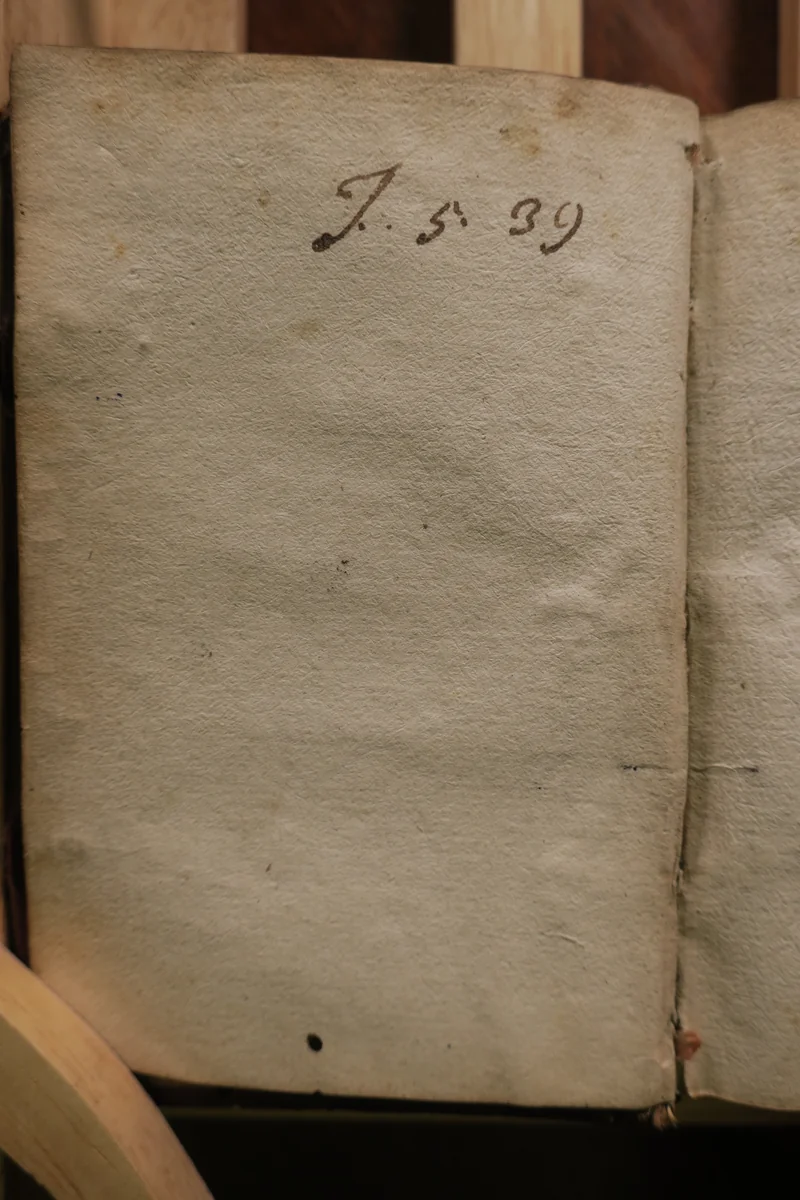 J. 5. 39